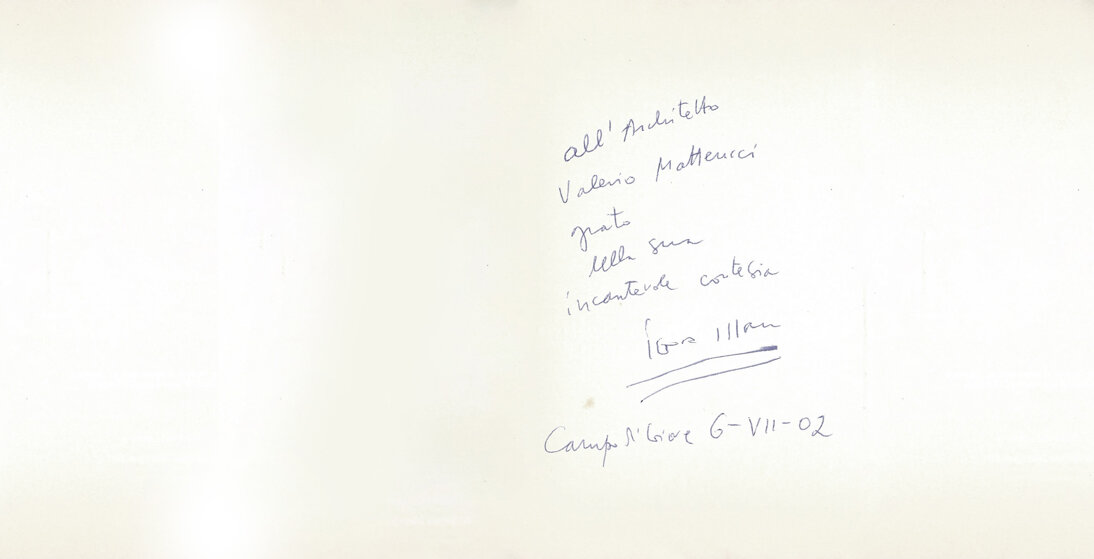 all'Architetto
Valerio Matteucci
grato
della sua
incantevole cortesia
Igor Man
Campo di Giove 6-VII-02